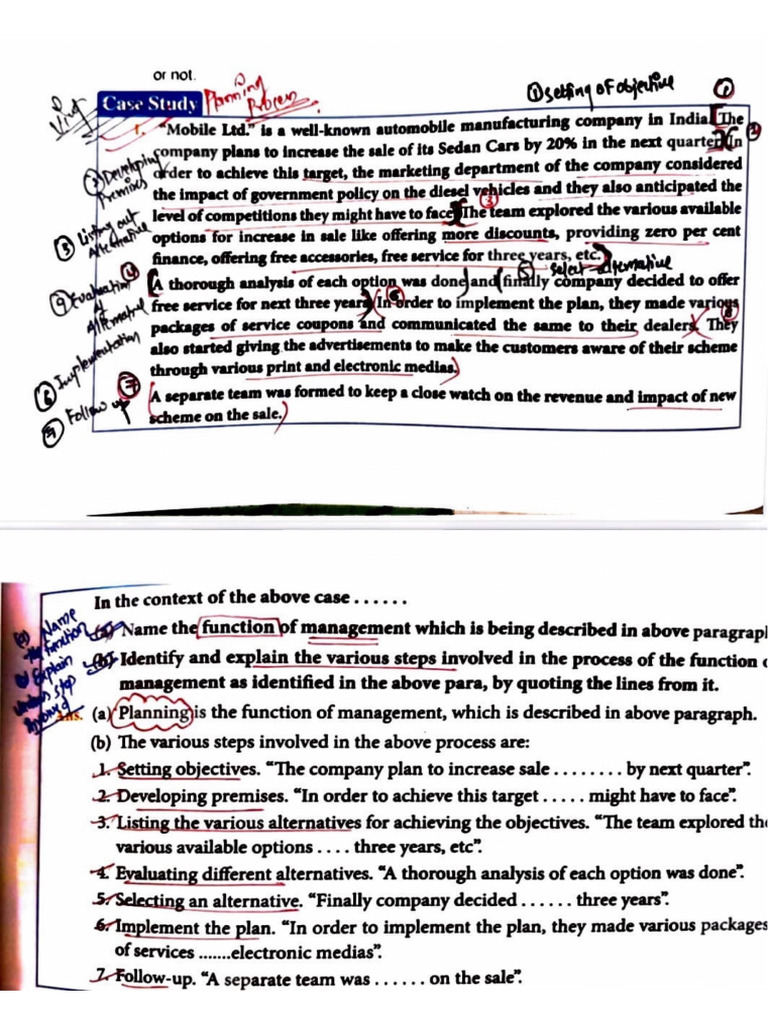 or not.
Case Study
Planning
Process
① Setting of objective
①
1. "Mobile Ltd." is a well-known automobile manufacturing company in India. The
company plans to increase the sale of its Sedan Cars by 20% in the next quarter. In
order to achieve this target, the marketing department of the company considered
the impact of government policy on the diesel vehicles and they also anticipated the
level of competitions they might have to face. The team explored the various available
options for increase in sale like offering more discounts, providing zero per cent
finance, offering free accessories, free service for three years, etc.
select alternative
A thorough analysis of each option was done and finally company decided to offer
free service for next three years. In order to implement the plan, they made various
packages of service coupons and communicated the same to their dealers. They
also started giving the advertisements to make the customers aware of their scheme
through various print and electronic medias.
A separate team was formed to keep a close watch on the revenue and impact of new
scheme on the sale.
Developing
Premises
③ Listing out
Alternative
Evaluation
of
Alternative
⑥ Implementation
Follow up
In the context of the above case ......
(a) Name the function of management which is being described in above paragrapl
(b) Identify and explain the various steps involved in the process of the function
management as identified in the above para, by quoting the lines from it.
Name
the function
Explain
various step
Ans. (a) Planning is the function of management, which is described in above paragraph.
(b) The various steps involved in the above process are:
1. Setting objectives. "The company plan to increase sale ........ by next quarter".
2. Developing premises. "In order to achieve this target ..... might have to face".
3. Listing the various alternatives for achieving the objectives. "The team explored the
various available options .... three years, etc".
4. Evaluating different alternatives. "A thorough analysis of each option was done".
5. Selecting an alternative. "Finally company decided ...... three years".
6. Implement the plan. "In order to implement the plan, they made various packages
of services .......electronic medias".
7. Follow-up. "A separate team was ...... on the sale".